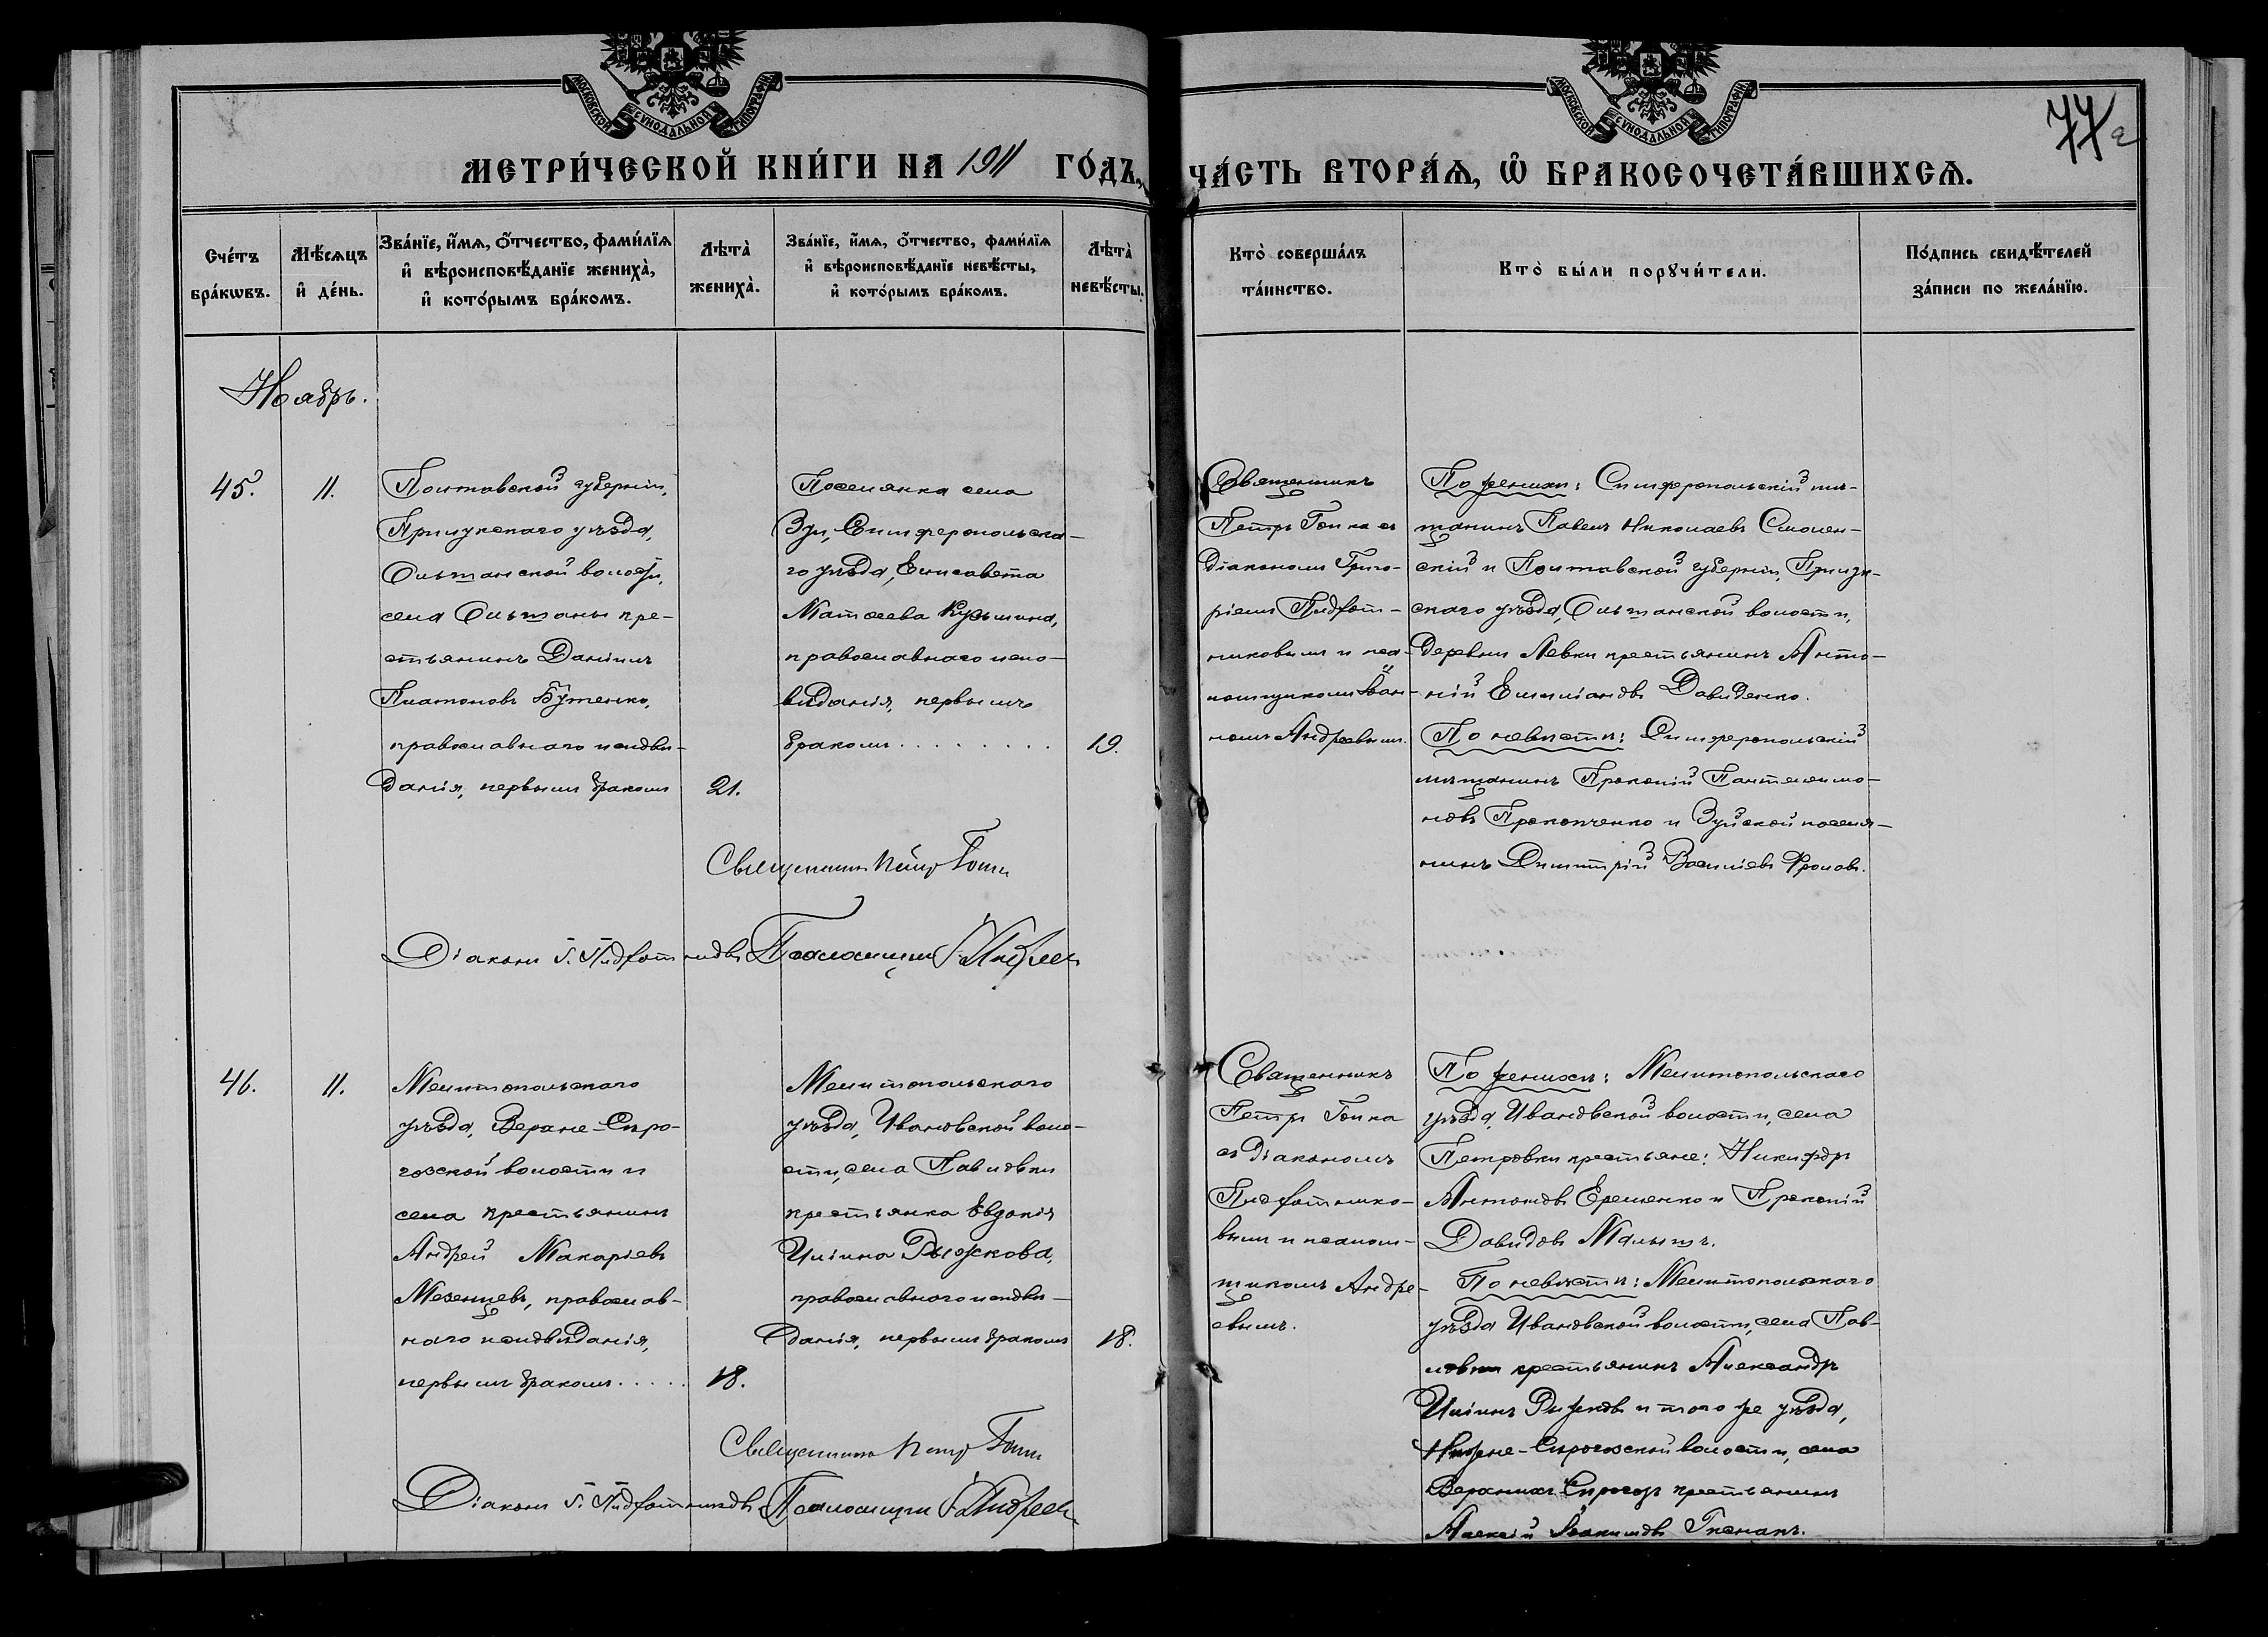 МОСКОВСКОЙ СѴНОДАЛЬНОЙ ТИПОГРАФІИ
МОСКОВСКОЙ СѴНОДАЛЬНОЙ ТИПОГРАФІИ
77
МЕТРИ́ЧЕСКОЙ КНИ́ГИ НА 1911 ГО́ДЪ, ЧА́СТЬ ВТОРА́Ѧ, Ѽ БРАКОСОЧЕТА́ВШИХСѦ.
Сче́тъ бра́кѡвъ.
Мѣ́сѧцъ и҆ де́нь.
Зва́нїе, и҆́мѧ, ѻ҆́тчество, фами́лїѧ и҆ вѣроисповѣ́данїе жениха̀, и҆ кото́рымъ бра́комъ.
Лѣта̀ жениха̀.
Зва́нїе, и҆́мѧ, ѻ҆́тчество, фами́лїѧ и҆ вѣроисповѣ́данїе невѣ́сты, и҆ кото́рымъ бра́комъ.
Лѣта̀ невѣ́сты.
Кто̀ соверша́лъ та́инство.
Кто̀ бы́ли порꙋчи́тели.
По́дпись свидѣ́телей за́писи по жела́нїю.
Ноябрь.
45.
11.
Полтавской губерніи,
Прилукскаго уѣзда,
Ольшанской волости,
села Ольшаны кре-
стьянинъ Даніилъ
Платоновъ Бутенко,
православнаго исповѣ-
данія, первымъ бракомъ
21.
Поселянка села
Зуи, Симферопольска-
го уѣзда, Елисавета
Матѳеева Кузьмина,
православнаго испо-
вѣданія, первымъ
бракомъ . . . . . . . . .
19.
Священникъ
Петръ Гопка съ
діакономъ Григо-
ріемъ Пидфат-
никовымъ и пса-
ломщикомъ Іоан-
номъ Андреевымъ.
По женихѣ: Симферопольскій мѣ-
щанинъ Павелъ Николаевъ Смолен-
скій и Полтавской губерніи, Прилук-
скаго уѣзда, Ольшанской волости,
деревни Левки крестьянинъ Анто-
ній Емиліановъ Давиденко.
По невѣстѣ: Симферопольскій
мѣщанинъ Прокопій Пантелеимо-
новъ Прокопченко и Зуйской поселя-
нинъ Димитрій Василіевъ Фроловъ.
Священникъ Петръ Гопка
Діаконъ Г. Пидфатниковъ Псаломщикъ І. Андреевъ
46.
11.
Мелитопольскаго
уѣзда, Верхне-Сѣро-
гозской волости и
села крестьянинъ
Андрей Макаріевъ
Мезенцевъ, православ-
наго исповѣданія,
первымъ бракомъ . . . . .
18.
Мелитопольскаго
уѣзда, Ивановской воло-
сти, села Павловки
крестьянка Евдокія
Иліина Рыжкова,
православнаго исповѣ-
данія, первымъ бракомъ
18.
Священникъ
Петръ Гопка
съ діакономъ
Пидфатнико-
вымъ и псалом-
щикомъ Андре-
евымъ.
По женихѣ: Мелитопольскаго
уѣзда, Ивановской волости, села
Петровки крестьяне: Никифоръ
Антоновъ Еременко и Прокопій
Давидовъ Малышъ.
По невѣстѣ: Мелитопольскаго
уѣзда Ивановской волости, села Пав-
ловки крестьянинъ Александръ
Иліинъ Рыжковъ и того же уѣзда,
Нижне-Сѣрогозской волости, села
Верхнихъ Сѣрогозъ крестьянинъ
Алексій Іоакимовъ
Священникъ Петръ Гопка
Діаконъ Г. Пидфатниковъ Псаломщикъ І. Андреевъ